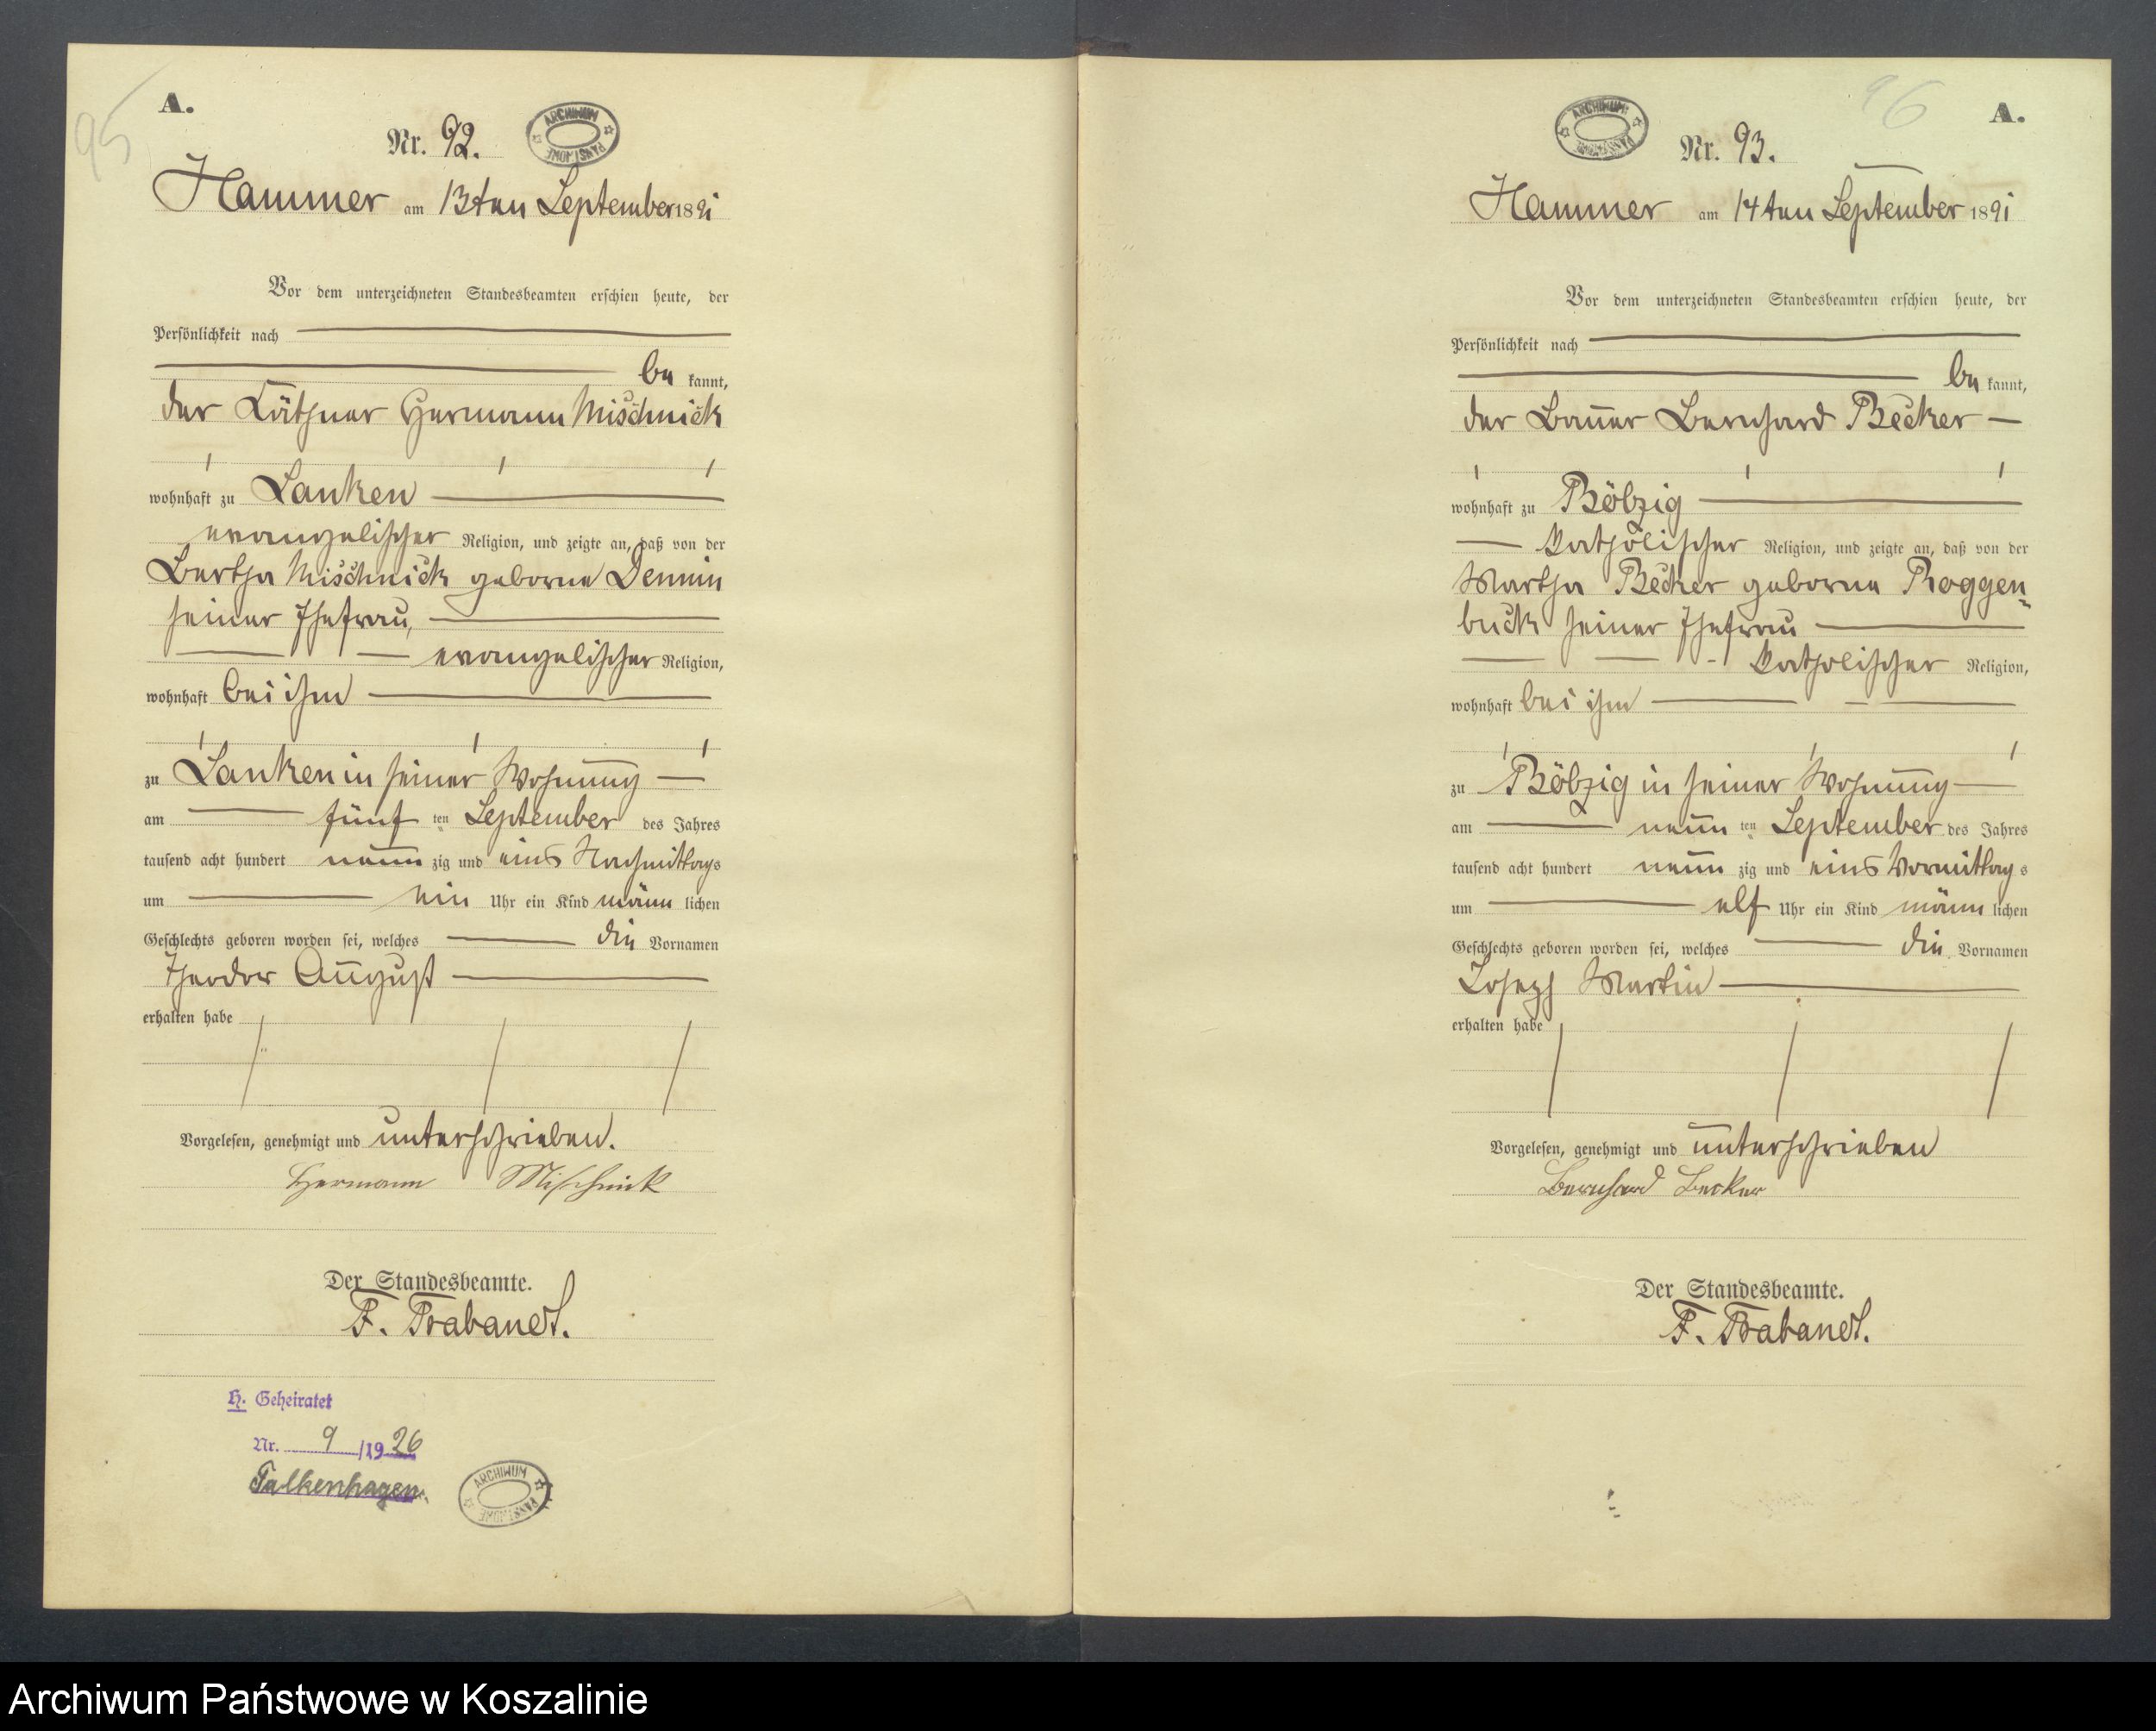 95
A.
Nr. 92.
ARCHIWUM PAŃSTWOWE
Hammer am 13ten September 1891
Vor dem unterzeichneten Standesbeamten erschien heute, der
Persönlichkeit nach
be kannt,
der Käthner Hermann Mischnick
wohnhaft zu Lanken
evangelischer Religion, und zeigte an, daß von der
Bertha Mischnick geborne Demin
seiner Ehefrau,
evangelischer Religion,
wohnhaft bei ihm
zu Lanken in seiner Wohnung
am fünf ten September des Jahres
tausend acht hundert neun zig und eins Nachmittags
um ein Uhr ein Kind männ lichen
Geschlechts geboren worden sei, welches die Vornamen
Theodor August
erhalten habe
Vorgelesen, genehmigt und unterschrieben.
Hermann Mischnick
Der Standesbeamte.
F. Trabandt.
H. Geheiratet
Nr. 9 /1926
Falkenhagen.
ARCHIWUM PAŃSTWOWE
96
A.
ARCHIWUM PAŃSTWOWE
Nr. 93.
Hammer am 14ten September 1891
Vor dem unterzeichneten Standesbeamten erschien heute, der
Persönlichkeit nach
be kannt,
der Bauer Bernhard Becker
wohnhaft zu Bölzig
katholischer Religion, und zeigte an, daß von der
Martha Becker geborne Roggen=
buck seiner Ehefrau
katholischer Religion,
wohnhaft bei ihm
zu Bölzig in seiner Wohnung
am neun ten September des Jahres
tausend acht hundert neun zig und eins Vormittag s
um elf Uhr ein Kind männ lichen
Geschlechts geboren worden sei, welches die Vornamen
Joseph Martin
erhalten habe
Vorgelesen, genehmigt und unterschrieben
Bernhard Becker
Der Standesbeamte.
F. Trabandt.
Archiwum Państwowe w Koszalinie